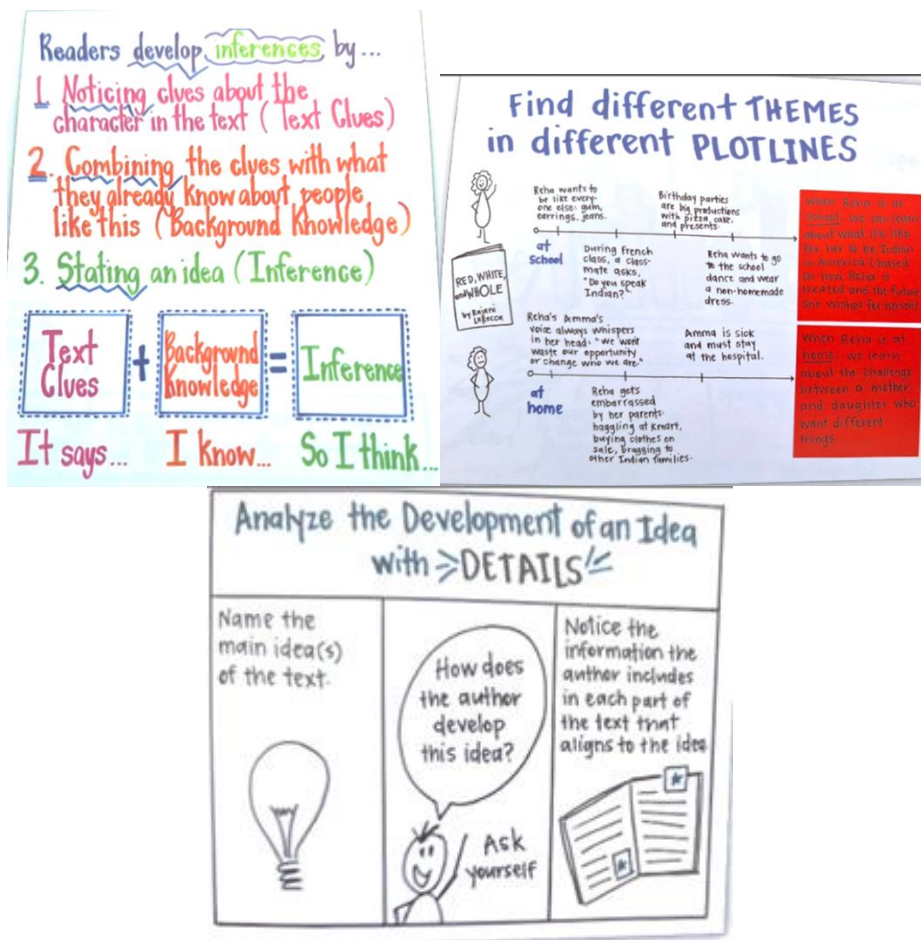 Readers develop inferences by...
1. Noticing clues about the
character in the text (Text Clues)
2. Combining the clues with what
they already know about people
like this (Background Knowledge)
3. Stating an idea (Inference)
Text
Clues
+
Background
Knowledge
=
Inference
It says... I know... So I think...
Find different THEMES
in different PLOTLINES
Reha wants to
be like every-
one else: gum,
earrings, jeans.
Birthday parties
are big productions
with pizza, cake,
and presents.
at
school
During French
class, a class-
mate asks,
"Do you speak
Indian?"
Reha wants to go
to the school
dance and wear
a non-homemade
dress.
When Reha is at
school, we can learn
about what it's like
for her to be Indian
in America based
on how Reha is
treated and the future
she wishes for herself.
RED, WHITE,
and WHOLE
by Rajani
LaRocca
Reha's Amma's
voice always whispers
in her head: "We won't
waste our opportunity
or change who we are."
Amma is sick
and must stay
at the hospital.
at
home
Reha gets
embarrassed
by her parents
haggling at Kmart,
buying clothes on
sale, bragging to
other Indian families.
When Reha is at
home, we learn
about the challenge
between a mother
and daughter who
want different
things.
Analyze the Development of an Idea
with DETAILS
Name the
main idea(s)
of the text.
How does
the author
develop
this idea?
Ask
yourself
Notice the
information the
author includes
in each part of
the text that
aligns to the idea